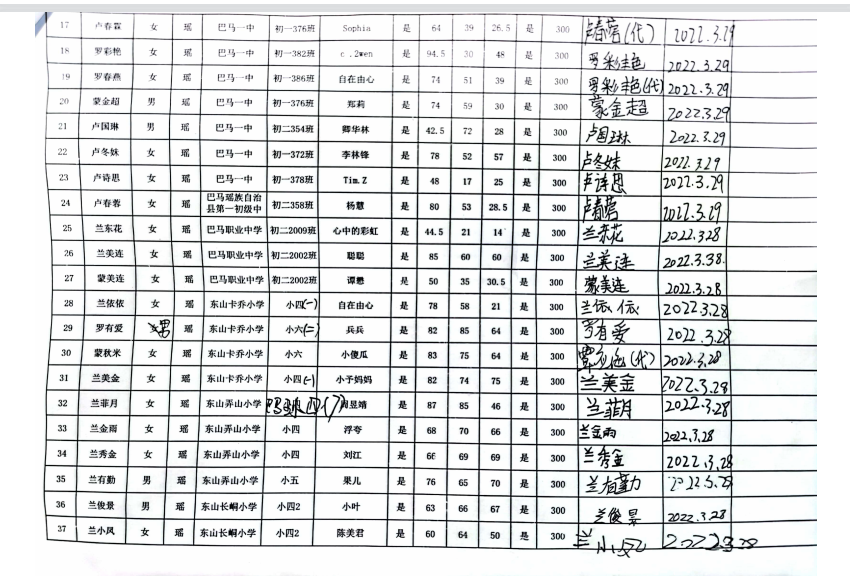 17 卢春霖 女 瑶 巴马一中 初一376班 Sophia 是 64 39 26.5 是 300 卢春蓉(代) 2022.3.29
18 罗彩艳 女 瑶 巴马一中 初一382班 c.,2wen 是 94.5 30 48 是 300 罗彩艳 2022.3.29
19 罗春燕 女 瑶 巴马一中 初一386班 自在由心 是 74 51 39 是 300 罗彩艳(代) 2022.3.29
20 蒙金超 男 瑶 巴马一中 初一376班 郑莉 是 74 59 30 是 300 蒙金超 2022.3.29
21 卢国琳 男 瑶 巴马一中 初二354班 卿华林 是 42.5 72 28 是 300 卢国琳 2022.3.29
22 卢冬妹 女 瑶 巴马一中 初一372班 李林锋 是 78 52 57 是 300 卢冬妹 2022.3.29
23 卢诗思 女 瑶 巴马一中 初一378班 Tim.Z 是 48 17 25 是 300 卢诗思 2022.3.29
24 卢春蓉 女 瑶 巴马瑶族自治县第一初级中 初二358班 杨慧 是 80 53 28.5 是 300 卢春蓉 2022.3.29
25 兰东花 女 瑶 巴马职业中学 初二2009班 心中的彩虹 是 44.5 21 14 是 300 兰东花 2022.3.28
26 兰美连 女 瑶 巴马职业中学 初二2002班 聪聪 是 85 60 60 是 300 兰美连 2022.3.38.
27 蒙美连 女 瑶 巴马职业中学 初二2002班 谭懋 是 50 35 30.5 是 300 蒙美连 2022.3.28
28 兰依依 女 瑶 东山卡乔小学 小四(一) 自在由心 是 78 58 21 是 300 兰依依 2022.3.28
29 罗有爱 男 瑶 东山卡乔小学 小六(二) 兵兵 是 82 85 64 是 300 罗有爱 2022.3.28
30 蒙秋米 女 瑶 东山卡乔小学 小六 小傻瓜 是 83 75 64 是 300 (代) 2022.3.28
31 兰美金 女 瑶 东山卡乔小学 小四(一) 小予妈妈 是 82 74 75 是 300 兰美金 2022.3.28
32 兰菲月 女 瑶 东山弄山小学 四(7) 昱靖 是 87 85 46 是 300 兰菲月 2022.3.28
33 兰金雨 女 瑶 东山弄山小学 小四 浮夸 是 68 70 66 是 300 兰金雨 2022.3.28
34 兰秀金 女 瑶 东山弄山小学 小四 刘江 是 66 69 69 是 300 兰秀金 2022.3.28
35 兰有勤 男 瑶 东山弄山小学 小五 果儿 是 76 65 70 是 300 兰有勤
36 兰俊景 男 瑶 东山长峒小学 小四2 小叶 是 63 66 67 是 300 兰俊景 2022.3.28
37 兰小凤 女 瑶 东山长峒小学 小四2 陈美君 是 60 64 50 是 300 兰小凤 2022.3.28